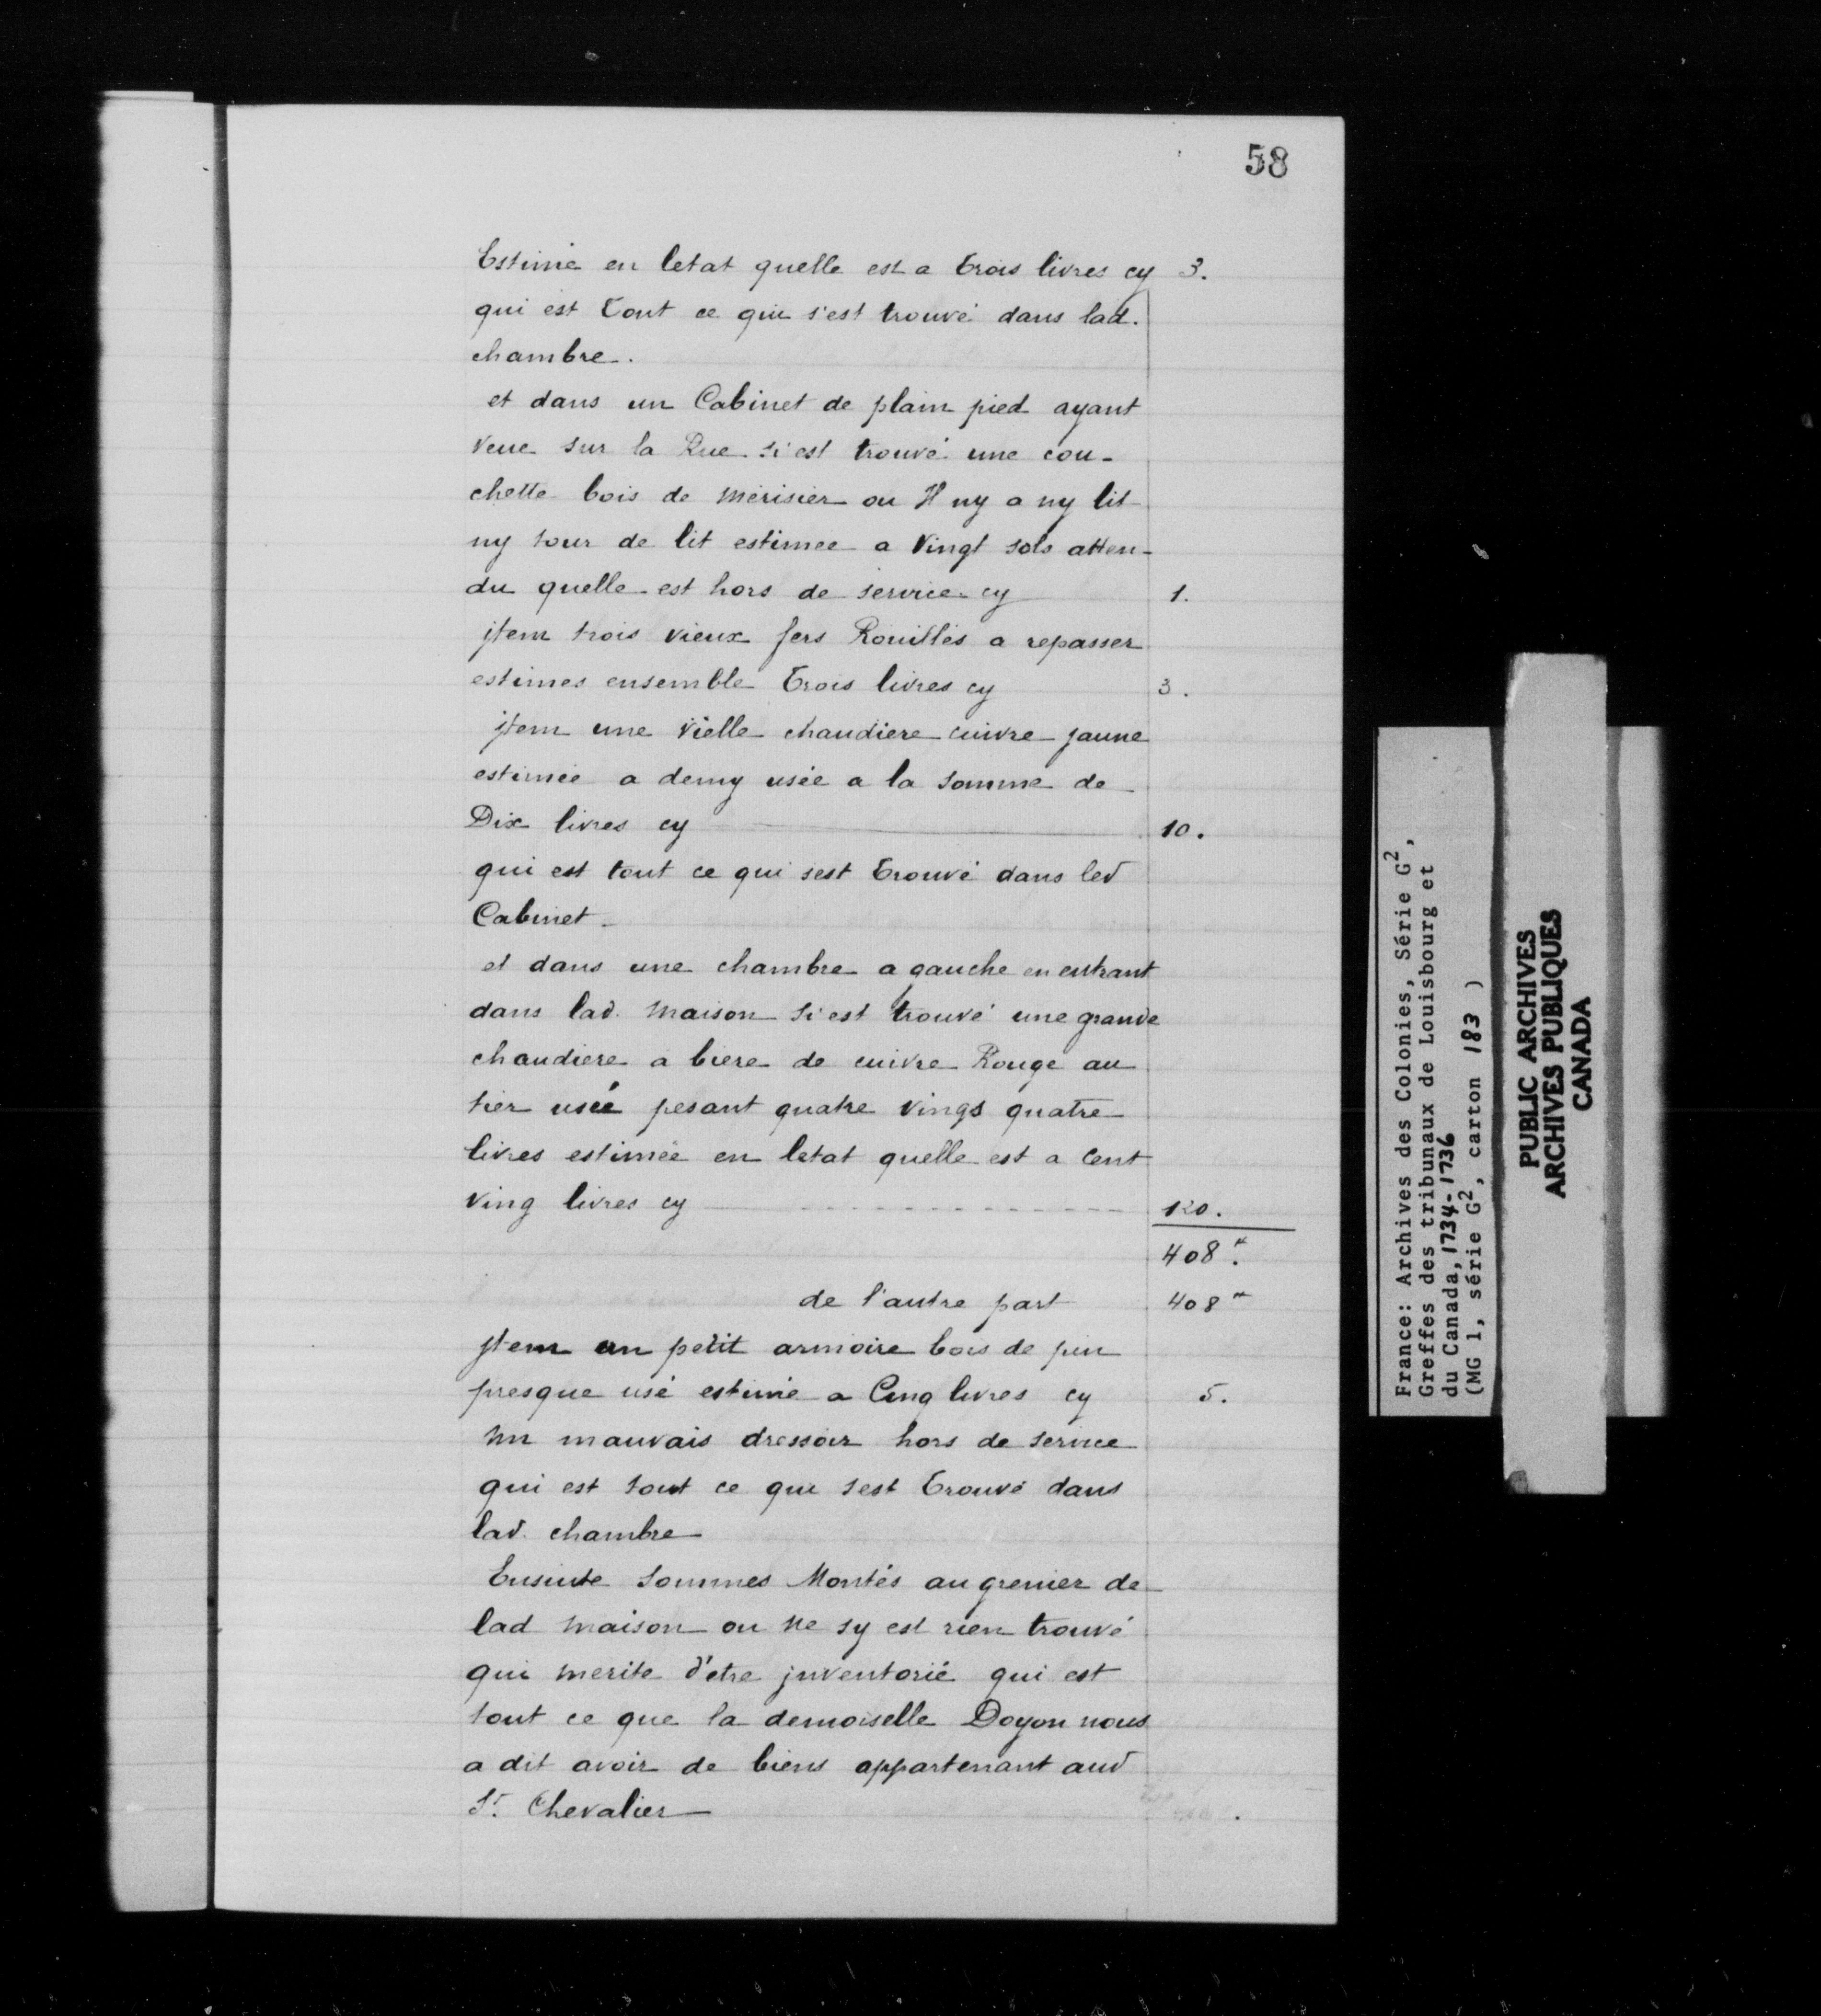 58
Estimé en letat quelle est a trois livres cy 3.
qui est tout ce qui s'est trouvé dans lad.
chambre.
et dans un Cabinet de plain pied ayant
veue sur la Rue s'est trouvé une cou-
chette bois de merisier ou Il ny a ny lit
ny tour de lit estimee a vingt sols atten-
du quelle est hors de service cy 1.
jtem trois vieux fers Rouillés a repasser
estimes ensemble trois livres cy 3.
jtem une vielle chaudiere cuivre jaune
estimée a demy usée a la somme de
Dix livres cy 10.
qui est tout ce qui sest trouvé dans led
Cabinet.
et dans une chambre a gauche en entrant
dans lad. maison s'est trouvé une grande
chaudiere a biere de cuivre Rouge au
tier usée pesant quatre vings quatre
livres estimée en letat quelle est a cent
ving livres cy 120.
408#.
de l'autre part 408#
jtem un petit armoire bois de pin
presque usé estimé a Cinq livres cy 5.
un mauvais dressoir hors de service
qui est tout ce qui sest trouvé dans
lad. chambre
Ensuite sommes Montés au grenier de
lad maison ou ne sy est rien trouvé
qui merite d'etre jnventorié qui est
tout ce que la demoiselle Doyon nous
a dit avoir de biens appartenant aud
Sr. Chevalier
France: Archives des Colonies, Série G2,
Greffes des tribunaux de Louisbourg et
du Canada, 1734-1736
(MG 1, série G2, carton 183 )
PUBLIC ARCHIVES
ARCHIVES PUBLIQUES
CANADA